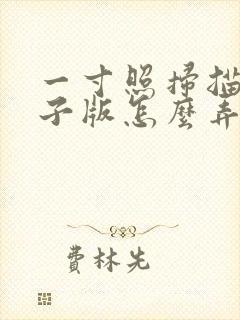 一寸照掃描
子版怎麼弄
費林先